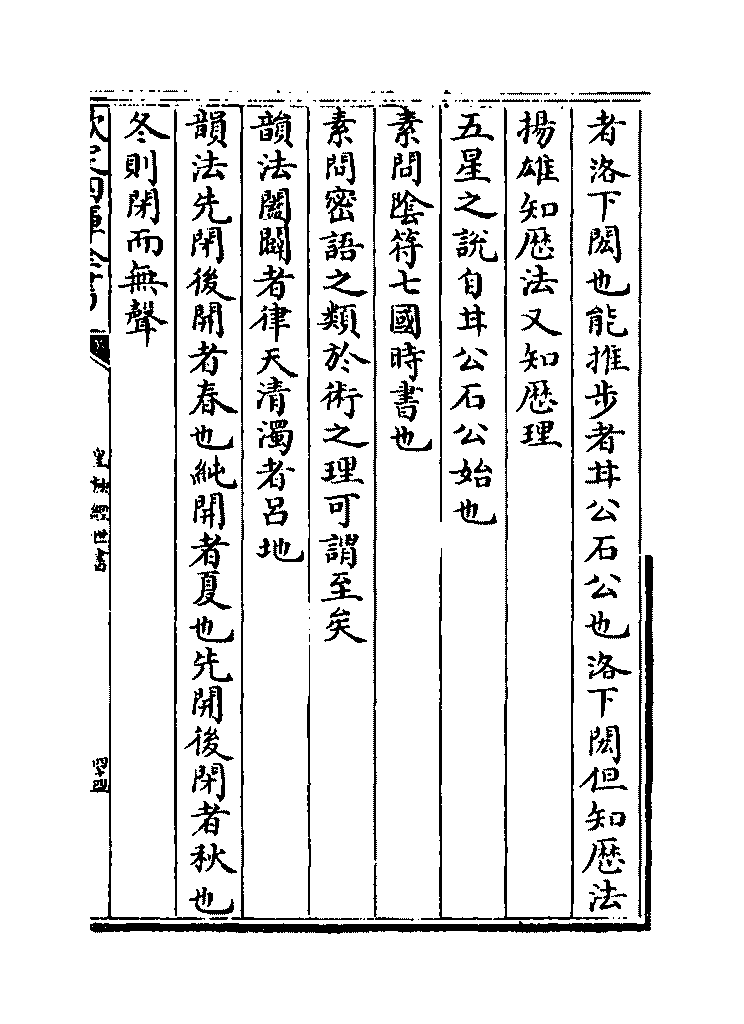 者洛下閎也能推步者甘公石公也洛下閎但知厯法
揚雄知厯法又知厯理
五星之說自甘公石公始也
素問陰符七國時書也
素問密語之類於術之理可謂至矣
韻法闔闢者律天清濁者呂地
韻法先閉後開者春也純開者夏也先開後閉者秋也
冬則閉而無聲
欽定四庫全書
皇極經世書